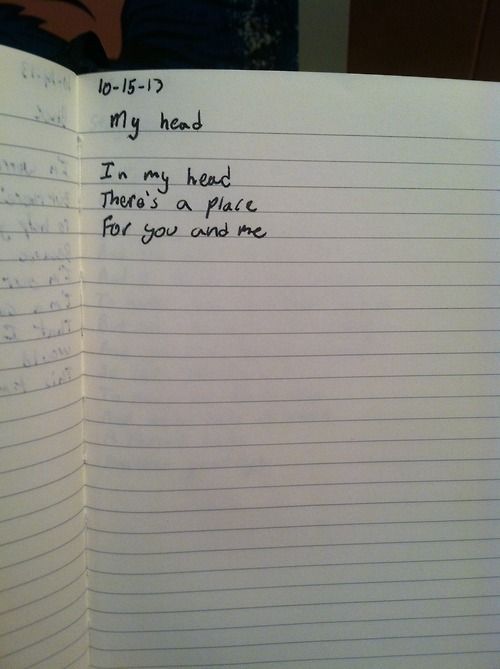 10-15-13
My head
In my head
There's a place
For you and me